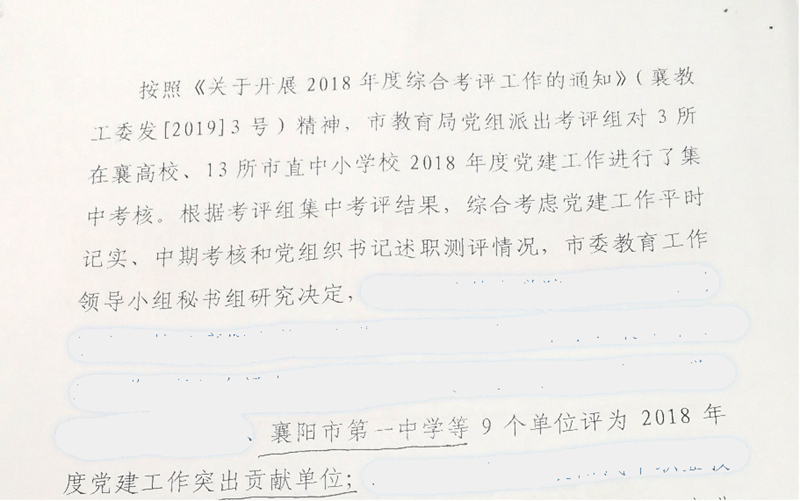 按照《关于开展 2018 年度综合考评工作的通知》（襄教
工委发[2019]3 号）精神，市教育局党组派出考评组对 3 所
在襄高校、13 所市直中小学校 2018 年度党建工作进行了集
中考核。根据考评组集中考评结果，综合考虑党建工作平时
记实、中期考核和党组织书记述职测评情况，市委教育工作
领导小组秘书组研究决定，
、襄阳市第一中学等 9 个单位评为 2018 年
度党建工作突出贡献单位；